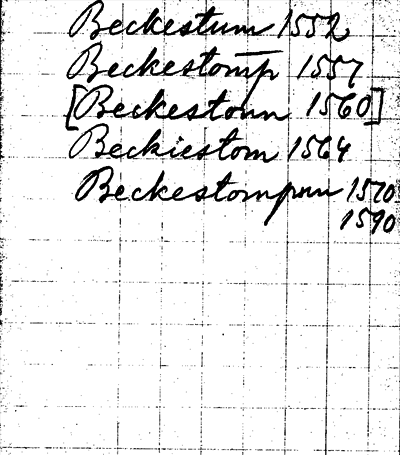 Beckestum 1552
Beckestomp 1557
[Beckestonn 1560]
Beckiestom 1564
Beckestompnn 1570
1590